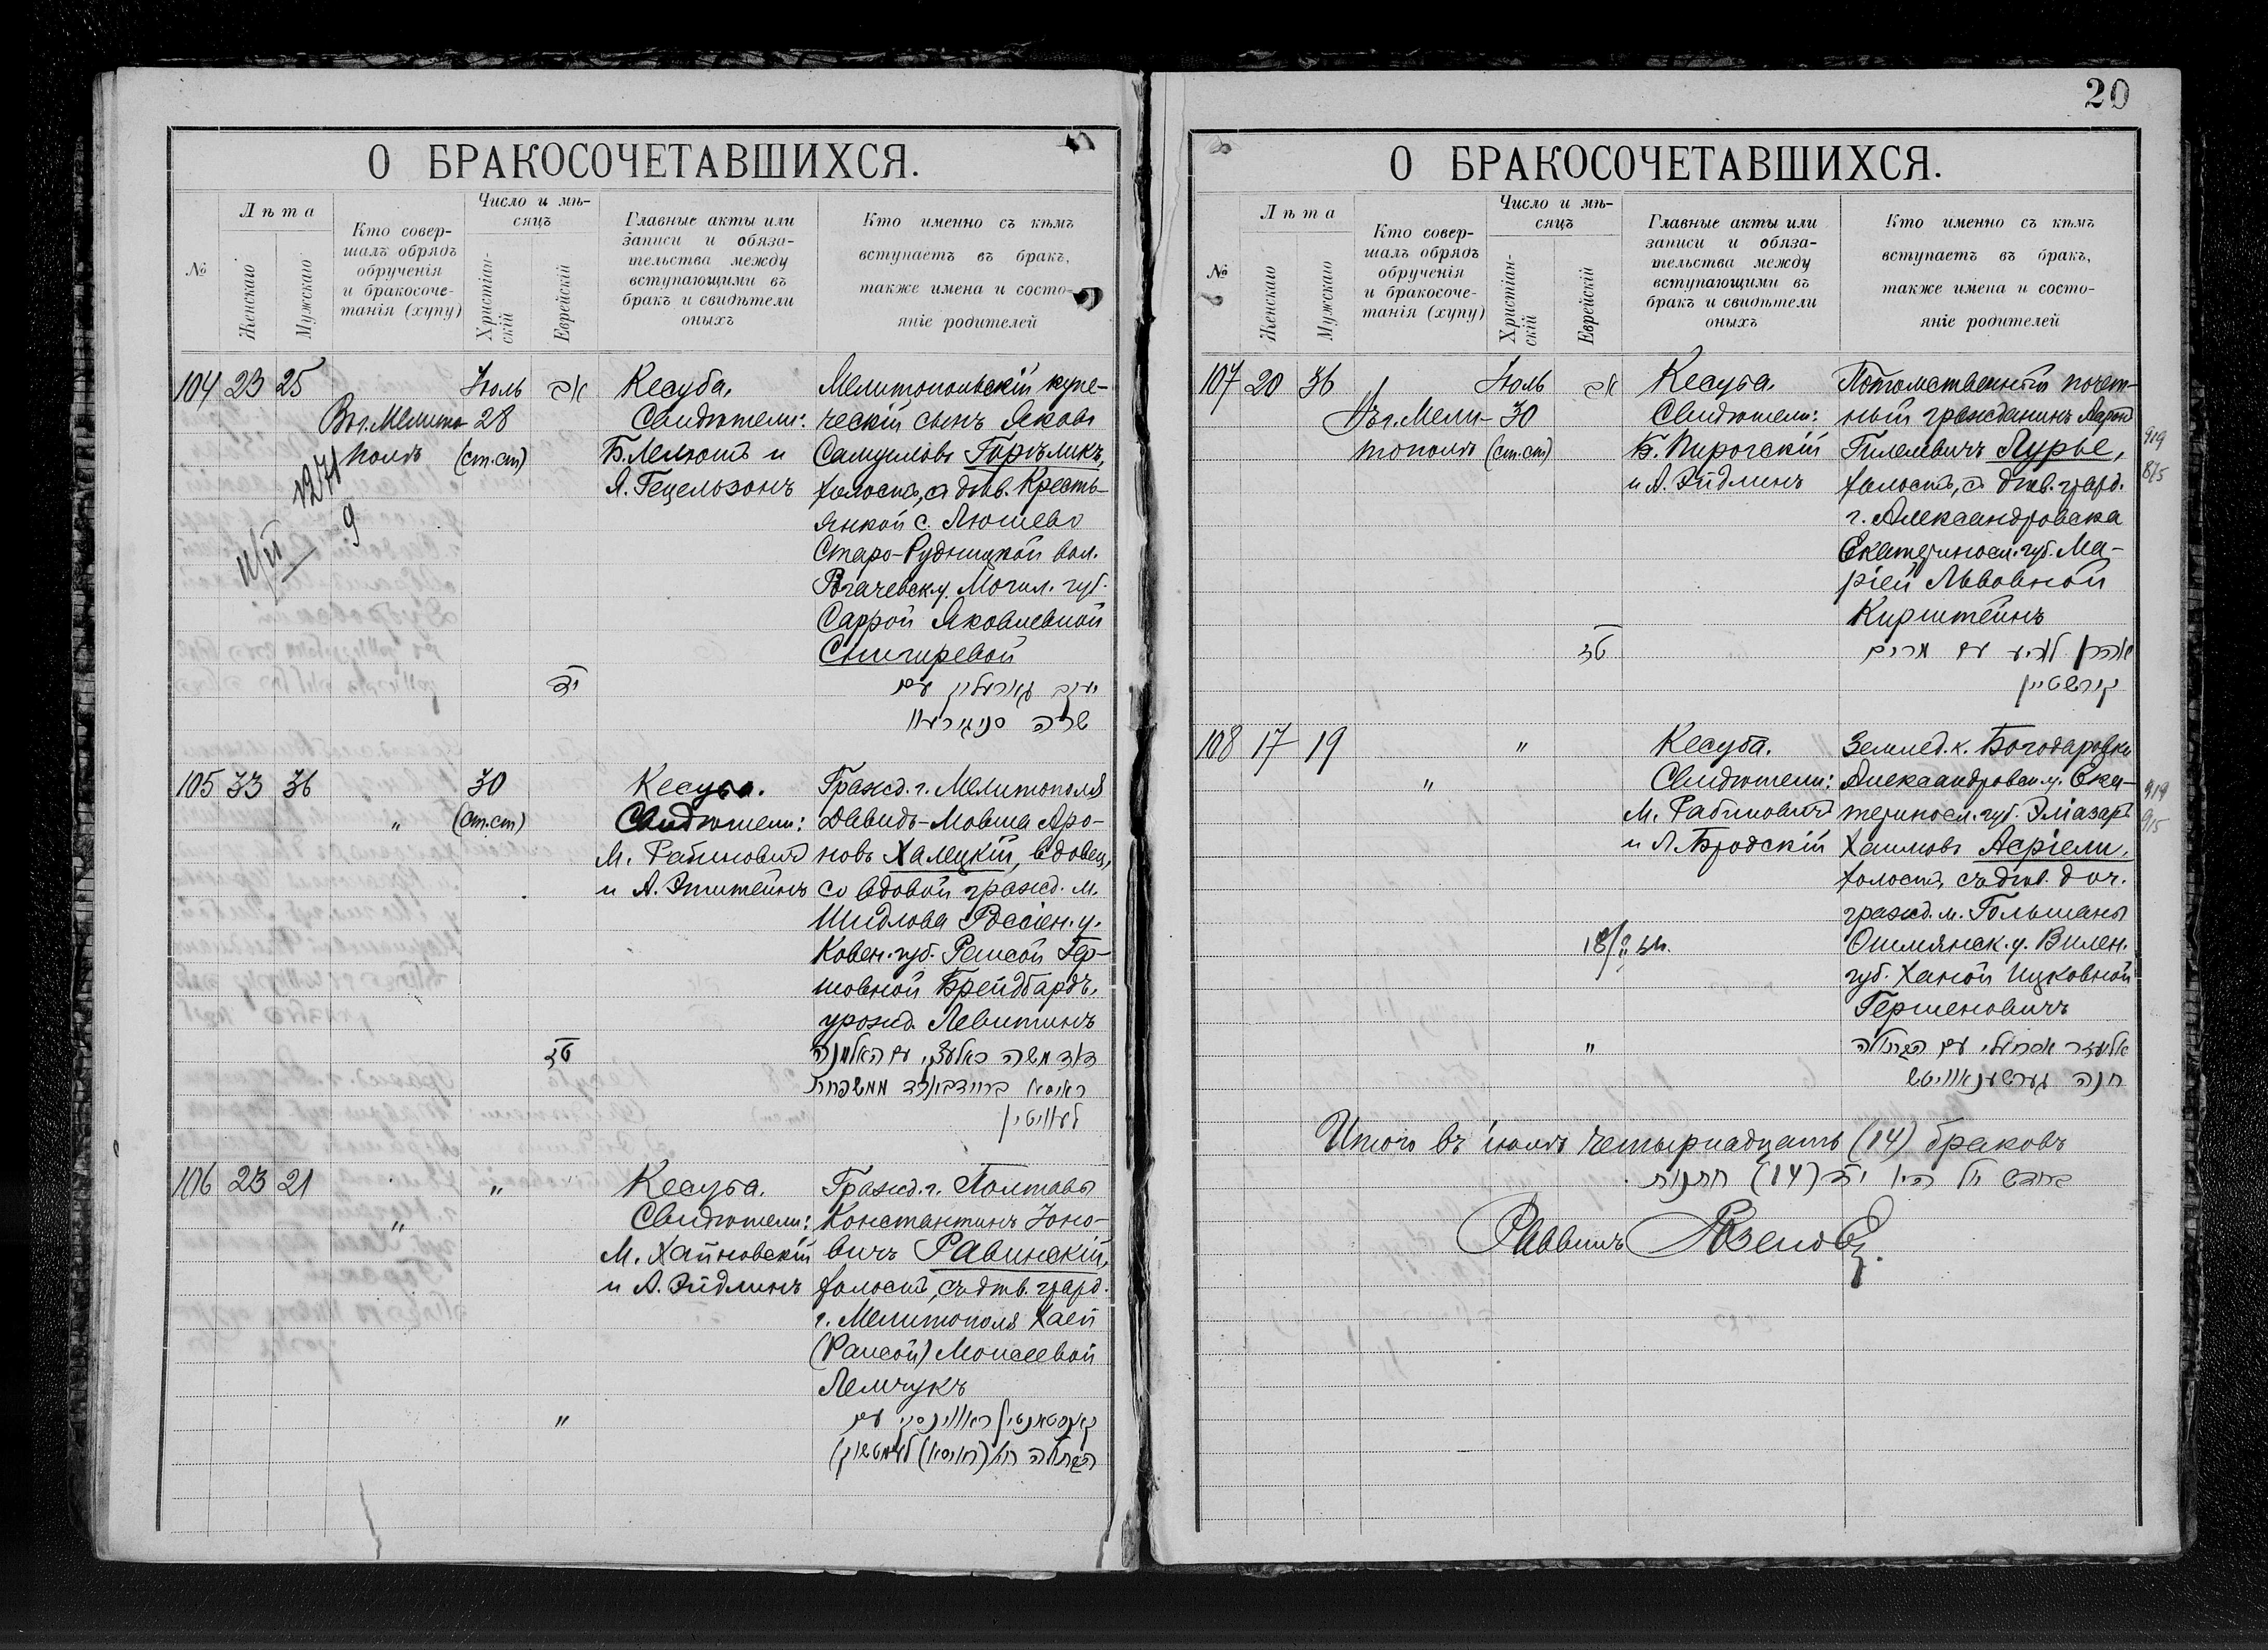 О БРАКОСОЧЕТАВШИХСЯ.
№
Лѣта
Женскаго
Мужскаго
Кто совер-
шалъ обрядъ
обрученія
и бракосоче-
танія (хупу)
Число и мѣ-
сяцъ
Христіан-
скій
Еврейскій
Главные акты или
записи и обяза-
тельства между
вступающими въ
бракъ и свидѣтели
оныхъ
Кто именно съ кѣмъ
вступаетъ въ бракъ,
также имена и состо-
яніе родителей
104 23 25
Въ г. Мелито-
полѣ
Іюль
28
(ст. ст)
אב
Кесуба.
Свидѣтели:
и
Я. Гецельзонъ
Мелитопольскій купе-
ческій сынъ Яковъ
Самуиловъ Горѣликъ,
холостъ, съ дѣв. Кресть-
янкой с. Люшево
Старо-Рудницкой вол.
Рогачевск. у. Могил. губ.
Саррой Яковлевной
Снигиревой
יד
יעקב גארעליק עם
שרה סניגירעוו
1271
9
105 33 36
"
30
(ст. ст)
Кесуба.
Свидѣтели:
М. Рабиновичъ
и А. Эпштейнъ
Гражд. г. Мелитополя
Давидъ-Мовша Аро-
новъ Халецкій, вдовец,
со вдовой гражд. м.
Шидлова Россіен. у.
Ковен. губ. Раисой Гер-
шовной Брейдбардъ,
урожд. Левитинъ
טז
דוד משה כאלעצקי עם האלמנה
ראיסא ברײדבארד ממשפחת
לעוויטין
106 23 21
"
"
Кесуба.
Свидѣтели:
М. Хайновскій
и А. Эйдлинъ
Гражд. г. Полтавы
Константинъ Іоно-
вичъ Равинскій,
холостъ, съ дѣв. гражд.
г. Мелитополя Хаей
(Раисой) Моисеевой
Лемчукъ
"
קאנסטאנטין ראווינסקי עם
הבתולה חיה (ראיסא) לעמטשוק
20
О БРАКОСОЧЕТАВШИХСЯ.
№
Лѣта
Женскаго
Мужскаго
Кто совер-
шалъ обрядъ
обрученія
и бракосоче-
танія (хупу)
Число и мѣ-
сяцъ
Христіан-
скій
Еврейскій
Главные акты или
записи и обяза-
тельства между
вступающими въ
бракъ и свидѣтели
оныхъ
Кто именно съ кѣмъ
вступаетъ въ бракъ,
также имена и состо-
яніе родителей
107 20 36
Въ г. Мели-
тополѣ
Іюль
30
(ст. ст)
אב
Кесуба.
Свидѣтели:
Б. Пирогскій
и А. Эйдлинъ
Потомственный почет-
ный гражданинъ Ааронъ
Гилелевичъ Лурье,
холостъ, съ дѣв. гражд.
г. Александровска
Екатериносл. губ. Ма-
ріей Львовной
Кирштейнъ
טז
אהרן לוריע עם מרים
קירשטיין
108 17 19
"
"
Кесуба.
Свидѣтели:
М. Рабиновичъ
и Л. Бродскій
Землед. к. Богодаровки
Александровск. у. Ека-
териносл. губ. Эліазаръ
Хаимовъ Асріели,
холостъ, съ дѣв. доч.
гражд. м. Гольшаны
Ошмянск. у. Вилен.
губ. Ханой Ицковной
Гершеновичъ
"
אליעזר אסריאלי עם הבתולה
חנה גערשענאוויטש
Итого въ іюлѣ четырнадцать (14) браковъ
בחדש יול היו יד (14) חתנות
Раввинъ